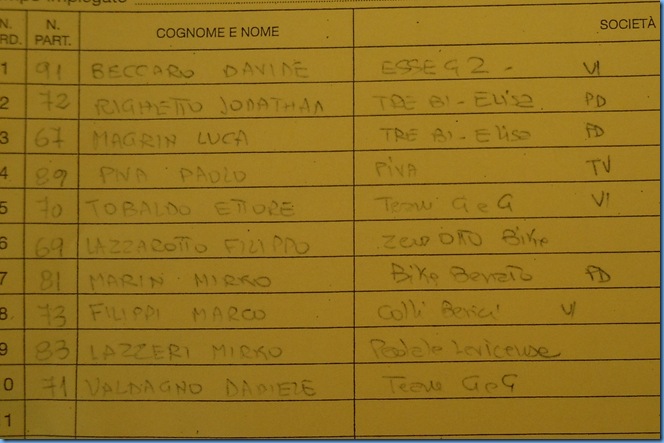 N. N. COGNOME E NOME SOCIETÀ
RD. PART.
1 91 BECCARO DAVIDE ESSEG2 - VI
2 72 RIGHETTO JONATHAN TRE BI - ELISO PD
3 67 MAGRIN LUCA TRE BI - ELISO PD
4 89 PIVA PAOLO PIVA TV
5 70 TOBALDO ETTORE Team G e G VI
6 69 LAZZAROTTO FILIPPO ZERO OTTO Bike
7 81 MARIN MIRKO Bike PD
8 73 FILIPPI MARCO Colli Berici VI
9 83 LAZZERI MIRKO Pedale
0 71 VALDAGNO DANIELE Team G e G
1